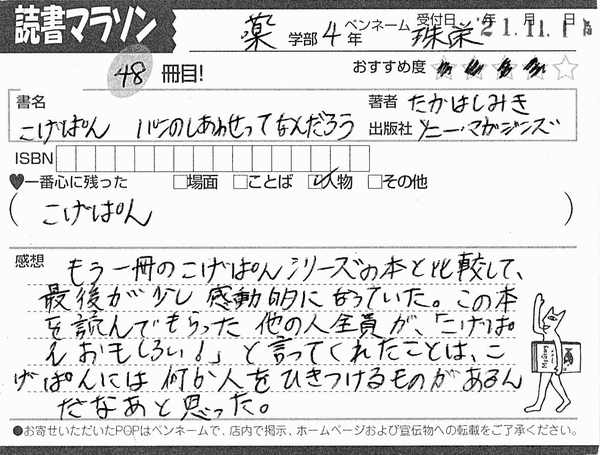 読書マラソン
薬 学部 4 年 ペンネーム 珠栄 受付日 '21.11.1 年 月 日
48 冊目!
おすすめ度 ★★★★☆
書名 著者 たかはしみき
こげぱん パンのしあわせってなんだろう 出版社 ソニー・マガジンズ
ISBN
♥一番心に残った □場面 □ことば ☑人物 □その他
( こげぱん )
感想 もう一冊のこげぱんシリーズの本と比較して、
最後が少し感動的になっていた。この本
を読んでもらった他の人全員が、「こげぱ
んおもしろい!」と言ってくれたことは、こ
げぱんには何か人をひきつけるものがあるん
だなあと思った。
●お寄せいただいたPOPはペンネームで、店内で掲示、ホームページおよび宣伝物への転載をご了承ください。